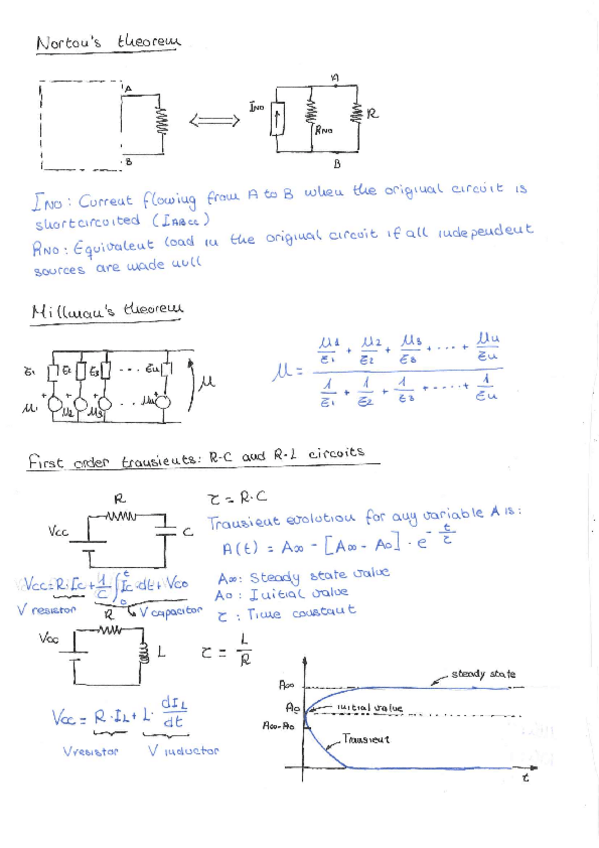 Norton's theorem
A
B
A
INO
RNO
R
B
INO: Current flowing from A to B when the original circuit is
shortcircuited (IABCC)
RNO: Equivalent load in the original circuit if all independent
sources are made null
Millman's theorem
Z̄1 Z̄2 Z̄3 ... Z̄n
μ1 + μ2 + μ3 + ... μn +
μ
μ = (μ1/Z̄1 + μ2/Z̄2 + μ3/Z̄3 + ... + μn/Z̄n) / (1/Z̄1 + 1/Z̄2 + 1/Z̄3 + ..... + 1/Z̄n)
First order transients: R-C and R-L circuits
R
Vcc
C
τ = R·C
Transient evolution for any variable A is:
A(t) = A∞ - [A∞ - A0] · e^(-t/τ)
Vcc = R·Ic + 1/C ∫0^t Ic·dt + Vco
V resistor
V capacitor
A∞: Steady state value
A0: Initial value
τ: Time constant
R
Vcc
L
τ = L/R
Vcc = R·IL + L·dIL/dt
V resistor
V inductor
steady state
A∞
A0
initial value
A∞-A0
Transient
t